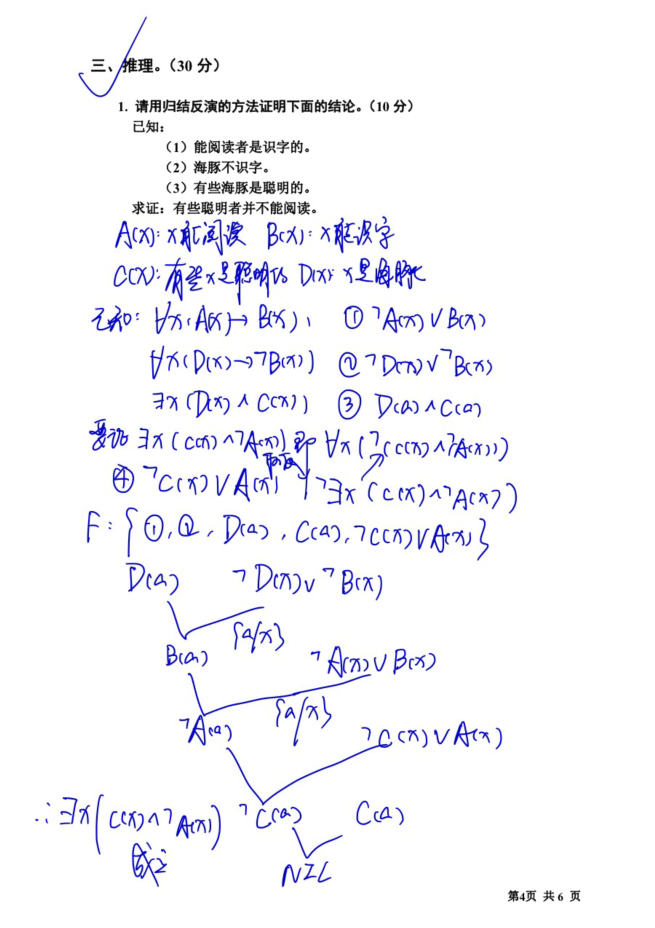 三、推理。（30 分）
1. 请用归结反演的方法证明下面的结论。（10 分）
已知：
（1）能阅读者是识字的。
（2）海豚不识字。
（3）有些海豚是聪明的。
求证：有些聪明者并不能阅读。
A(x): x能阅读 B(x): x能识字
C(x): 有些x是聪明的 D(x): x是海豚
已知: ∀x(A(x)→B(x)), ① ¬A(x)∨B(x)
∀x(D(x)→¬B(x)) ② ¬D(x)∨¬B(x)
∃x(D(x)∧C(x)) ③ D(a)∧C(a)
要证 ∃x(C(x)∧¬A(x)) 即 ∀x(¬(C(x)∧¬A(x)))
④ ¬C(x)∨A(x) ¬∃x(C(x)∧¬A(x))
F: {①,②, D(a), C(a), ¬C(x)∨A(x)}
D(a) ¬D(x)∨¬B(x)
{a/x}
B(a) ¬A(x)∨B(x)
{a/x}
¬A(a) ¬C(x)∨A(x)
∴∃x(C(x)∧¬A(x)) ¬C(a) C(a)
成立
NIL
第4页 共 6 页